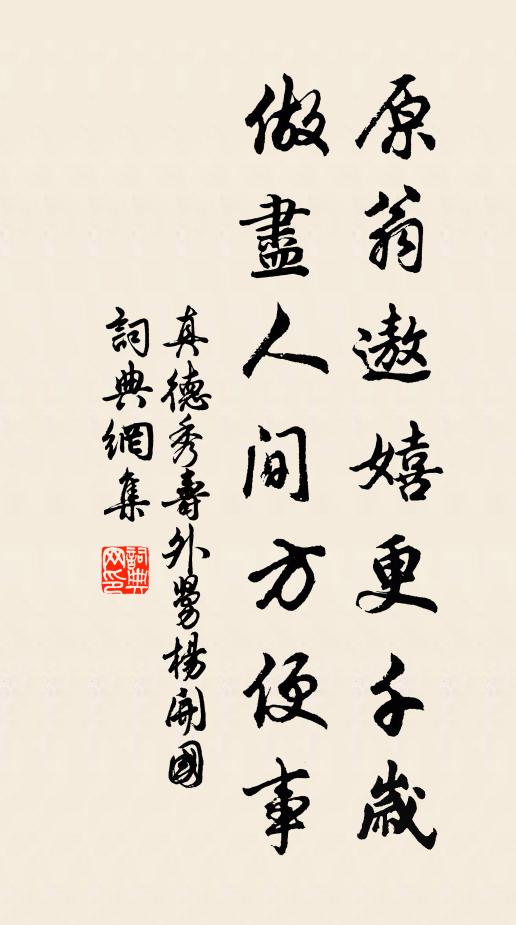 原翁遨嬉更千歲
做盡人間方便事
真德秀壽外舅楊開國
詞典網集
詞典
网印